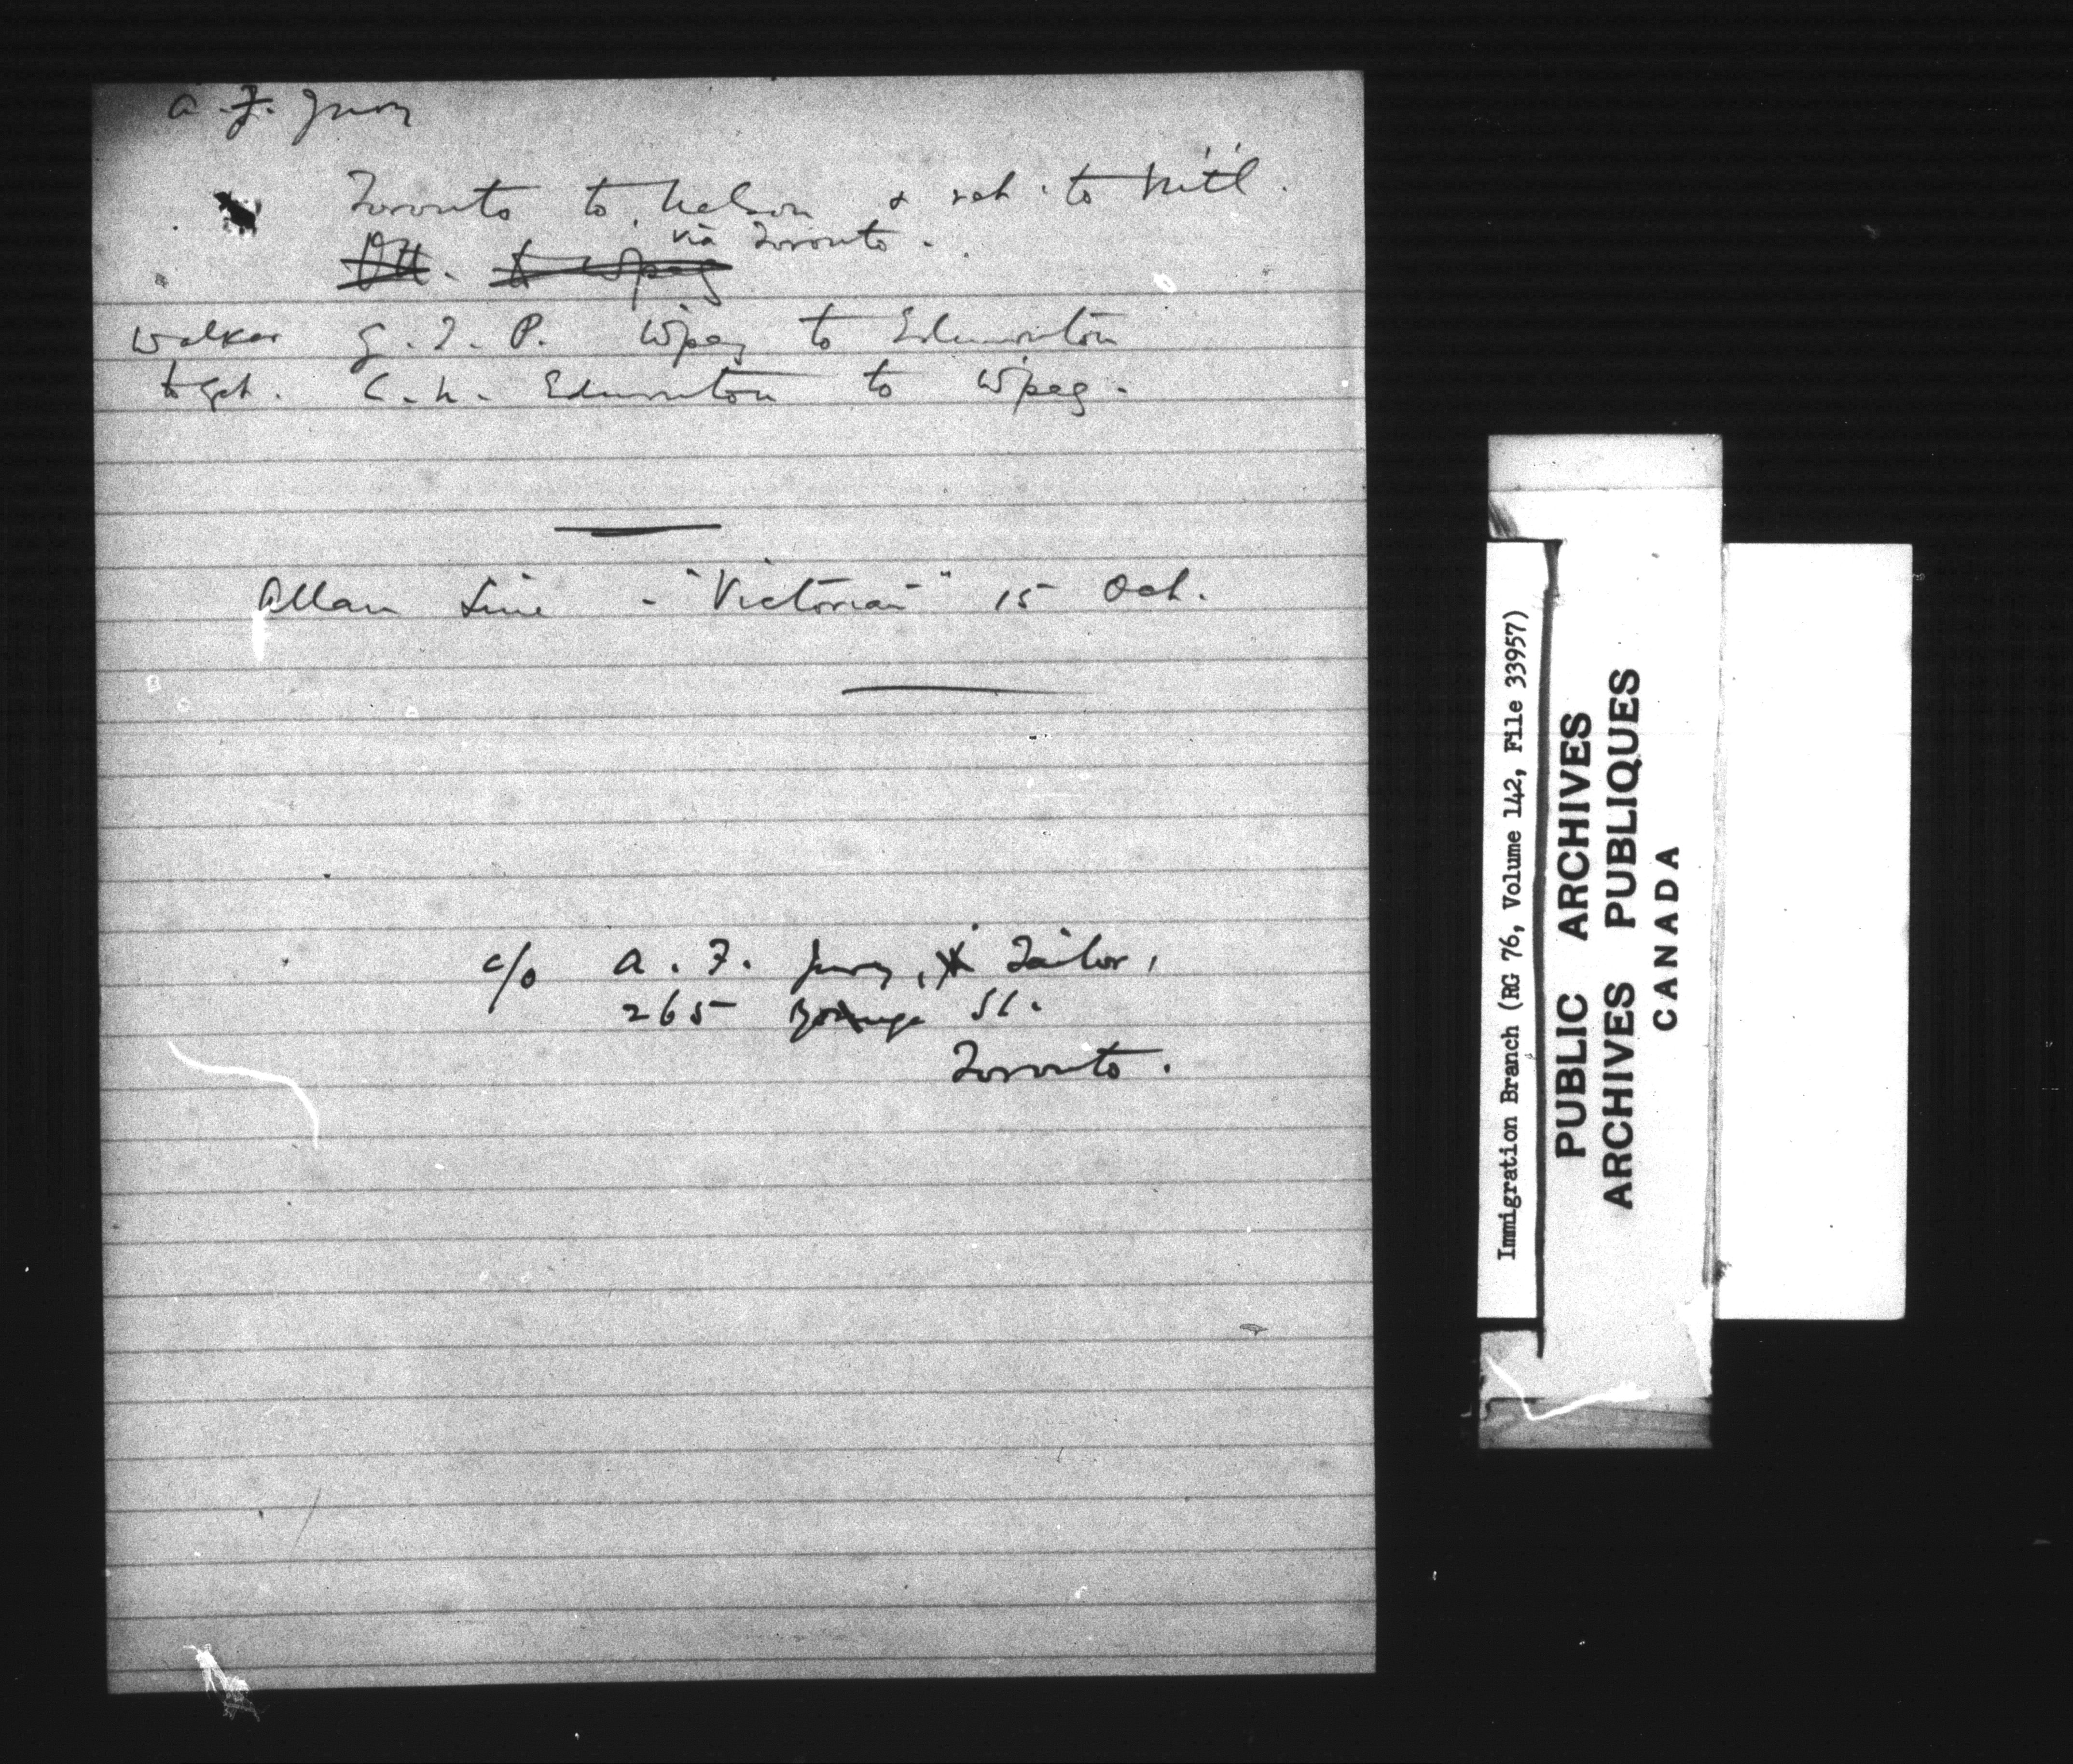 A. F. Jury
Toronto to Nelson & ret. to Mt'l.
via Toronto.
Ott. to Wpeg
Walker G. T. P. W'peg to Edmonton
to get. C. N. Edmonton to W'peg.
Allan Line - "Victorian" 15 Oct.
c/o A. F. Jury, Tailor,
265 Yonge St.
Toronto.
Immigration Branch (RG 76, Volume 142, File 33957)
PUBLIC ARCHIVES
ARCHIVES PUBLIQUES
CANADA